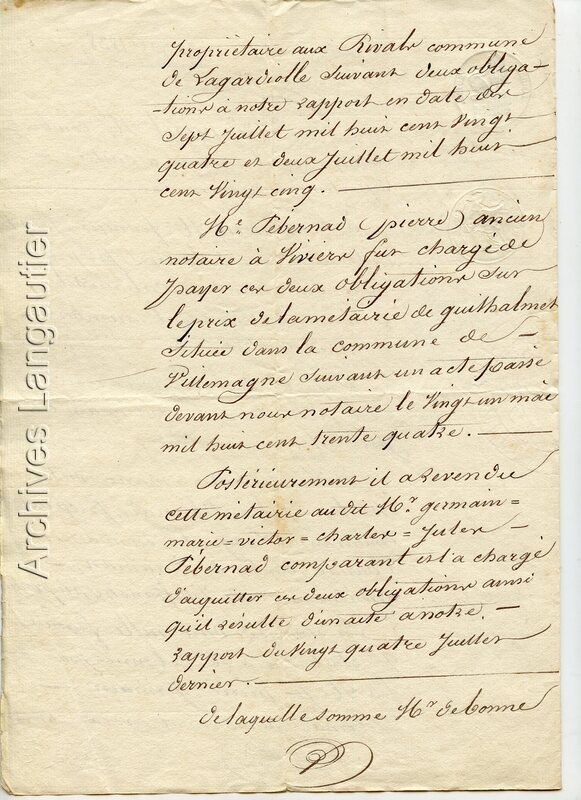 propriétaire aux Rivals commune
de Lagardiolle suivant deux obliga-
-tions à notre rapport en date des
sept juillet mil huit cent vingt
quatre et deux juillet mil huit
cent vingt cinq. —
Me. Pébernad (pierre) ancien
notaire à Viviers fut chargé de
payer ces deux obligations sur
le prix de la métairie de guithalmet
située dans la commune de —
Villemagne suivant un acte passé
devant nous notaire le vingt un mai
mil huit cent trente quatre. —
Postérieurement il a revendu
cette métairie au dit Mr. germain=
marie=victor=charles=Jules —
Pébernad comparant et l'a chargé
d'aquitter ces deux obligations ainsi
qu'il résulte d'un acte a notre. —
rapport du vingt quatre Juillet
dernier. —
de laquelle somme Mr de bonne
Archives Langautier